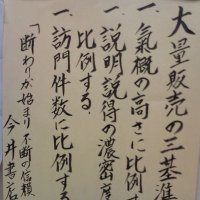 大量販売の三基準
一、氣概の高さに比例す
一、説明説得の濃密度
比例する。
一、訪問件数に比例する
「断わりが始まり不断の信頼
今井書店